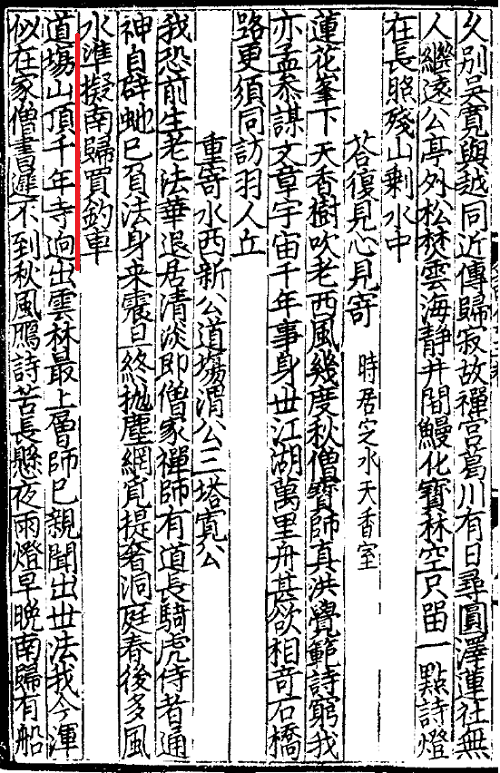 久別吴寛與越同近傳歸寂故禪宫葛川有日尋圓澤蓮社無
人繼遠公亭外松焚雲海静井閒鰻化寳林空只留一點詩燈
在長照殘山剩水中
荅復見心見寄 時居定水天香室
蓮花峯下天香樹吹老西風幾度秋僧寳師真洪覺範詩窮我
亦孟叅謀文章宇宙千年事身丗江湖萬里舟甚欲相竒石橋
路更須同訪羽人丘
重寄水西新公道塲渭公三塔寛公
我恐前生老法華退居清淡即僧家禪師有道長騎虎侍者通
神自辟虵已負法身来震旦終抛塵網寛提奢洞庭春後多風
水準擬南歸買釣車
道塲山頂千年寺迥出雲林最上層師已親聞出丗法我今渾
似在家僧書遲不到秋風鴈詩苦長懸夜雨燈早晚南歸有船